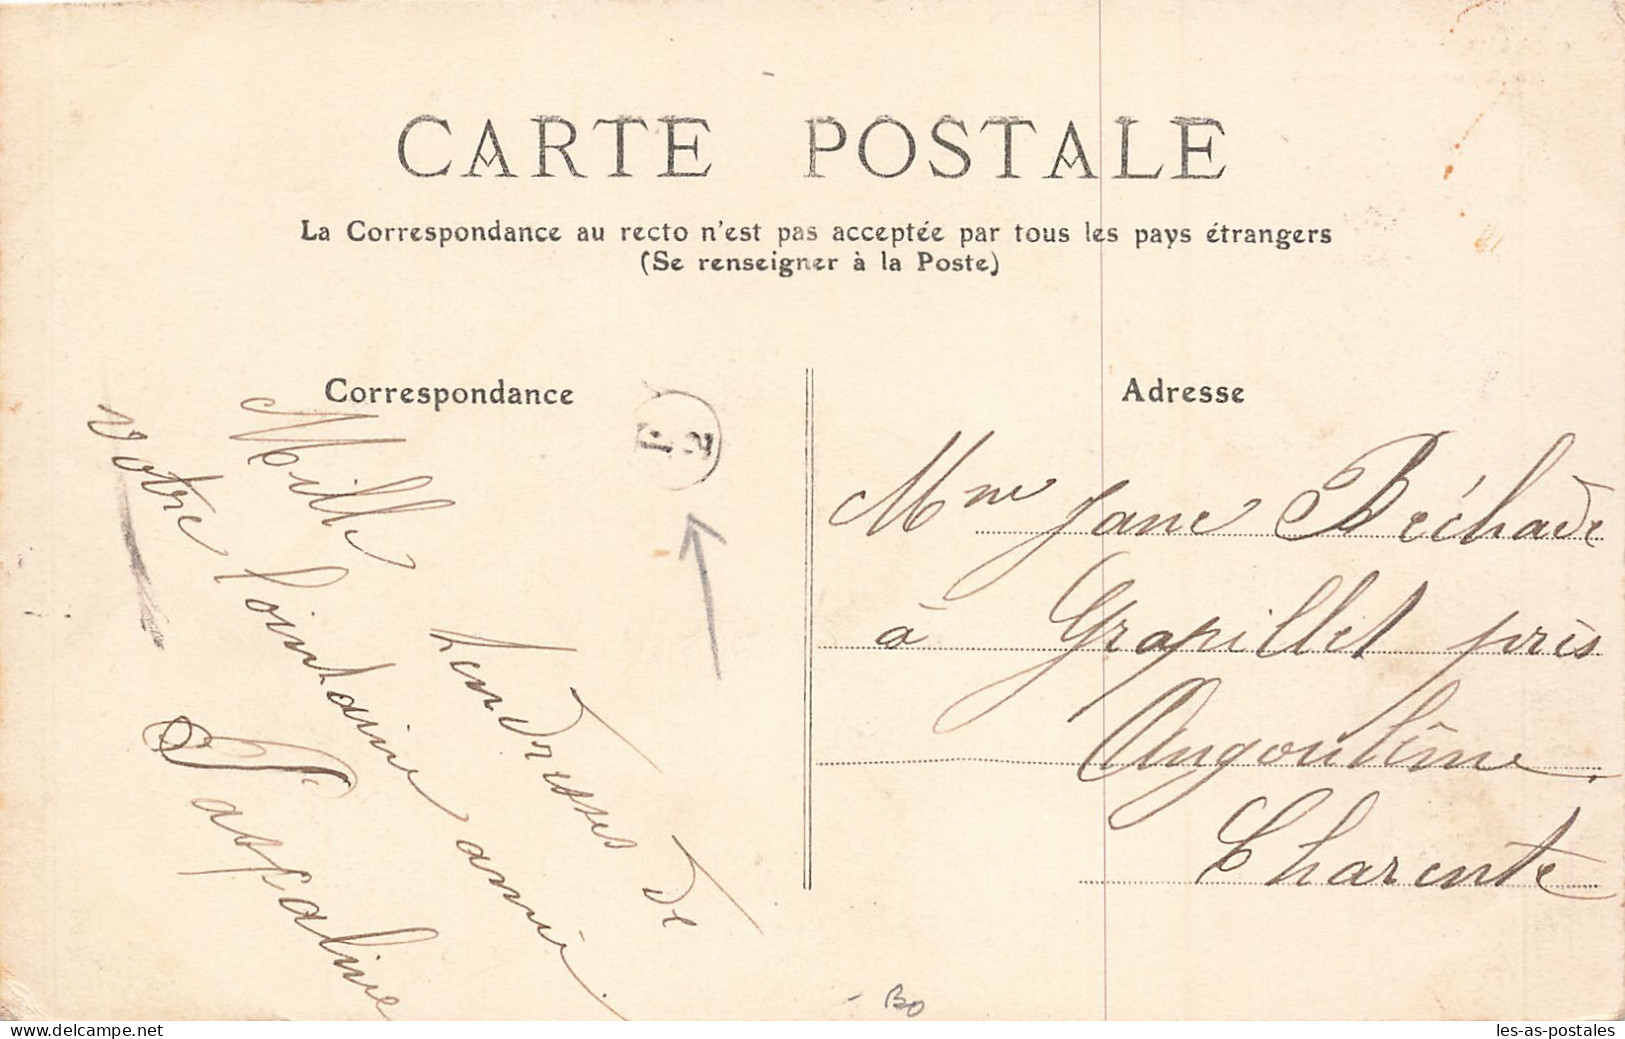 CARTE POSTALE
La Correspondance au recto n'est pas acceptée par tous les pays étrangers
(Se renseigner à la Poste)
Correspondance
Mille tendresses de
votre lointaine amie
Pascaline
2
Adresse
Mme Jane Béchade
à Grapillet près
Angoulême.
Charente
BO
www.delcampe.net
les-as-postales